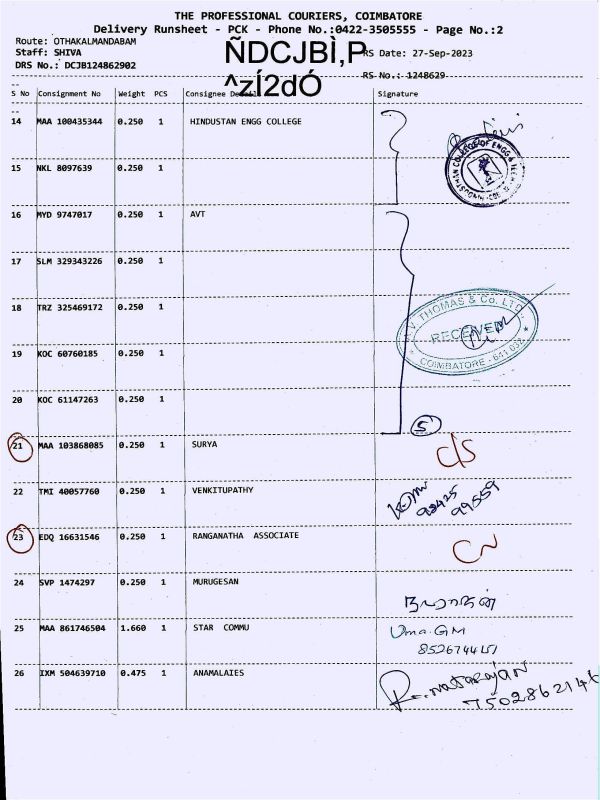 THE PROFESSIONAL COURIERS, COIMBATORE
Delivery Runsheet - PCK - Phone No.:0422-3505555 - Page No.:2
Route: OTHAKALMANDABAM
Staff: SHIVA
ÑDCJBÌ,P
RS Date: 27-Sep-2023
DRS No.: DCJB124862902
^zÍ2dÓ
RS No.: 1248629
S No Consignment No Weight PCS Consignee Signature
14 MAA 100435344 0.250 1 HINDUSTAN ENGG COLLEGE
15 NKL 8097639 0.250 1
16 MYD 9747017 0.250 1 AVT
17 SLM 329343226 0.250 1
18 TRZ 325469172 0.250 1
THOMAS & Co. LTD
RECEIVED
COIMBATORE - 641 032
19 KOC 60760185 0.250 1
20 KOC 61147263 0.250 1
5
21 MAA 103868085 0.250 1 SURYA c/s
22 TMI 40057760 0.250 1 VENKITUPATHY
99559
23 EDQ 16631546 0.250 1 RANGANATHA ASSOCIATE
24 SVP 1474297 0.250 1 MURUGESAN
25 MAA 861746504 1.660 1 STAR COMMU Uma.GM
26 IXM 504639710 0.475 1 ANAMALAIES
7502862146